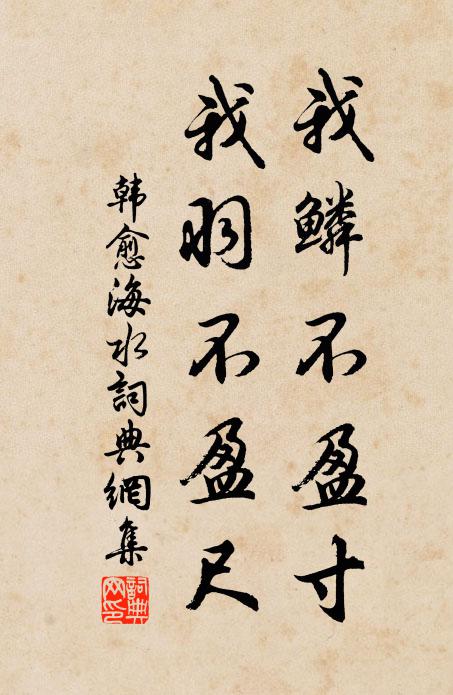 我鳞不盈寸
我羽不盈尺
韩愈海水詞典網集
詞典
网印